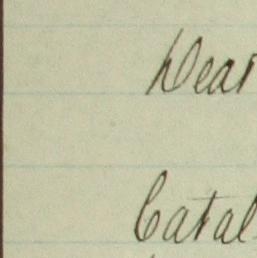 Dear
Catal